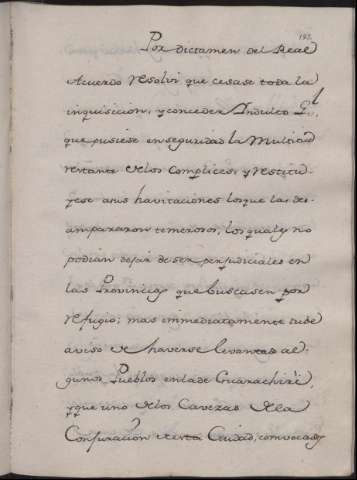 193.
Por dictamen del Real
Acuerdo resolvi que cesase toda la
inquisicion, y conceder Yndulto G.l
que pusiese en seguridad la Multitud
restante de los Complices, y restitu-
yese a sus havitaciones los que las des-
ampararon temerosos, los quales no
podian dejar de ser perjudiciales en
las Provincias que buscasen por
refugio; mas immediatamente tube
aviso de haverse levantado al-
gunos Pueblos en la de Guarachiri,
y que uno de los Cavezas de la
Conjuracion de esta Ciudad, convocaba